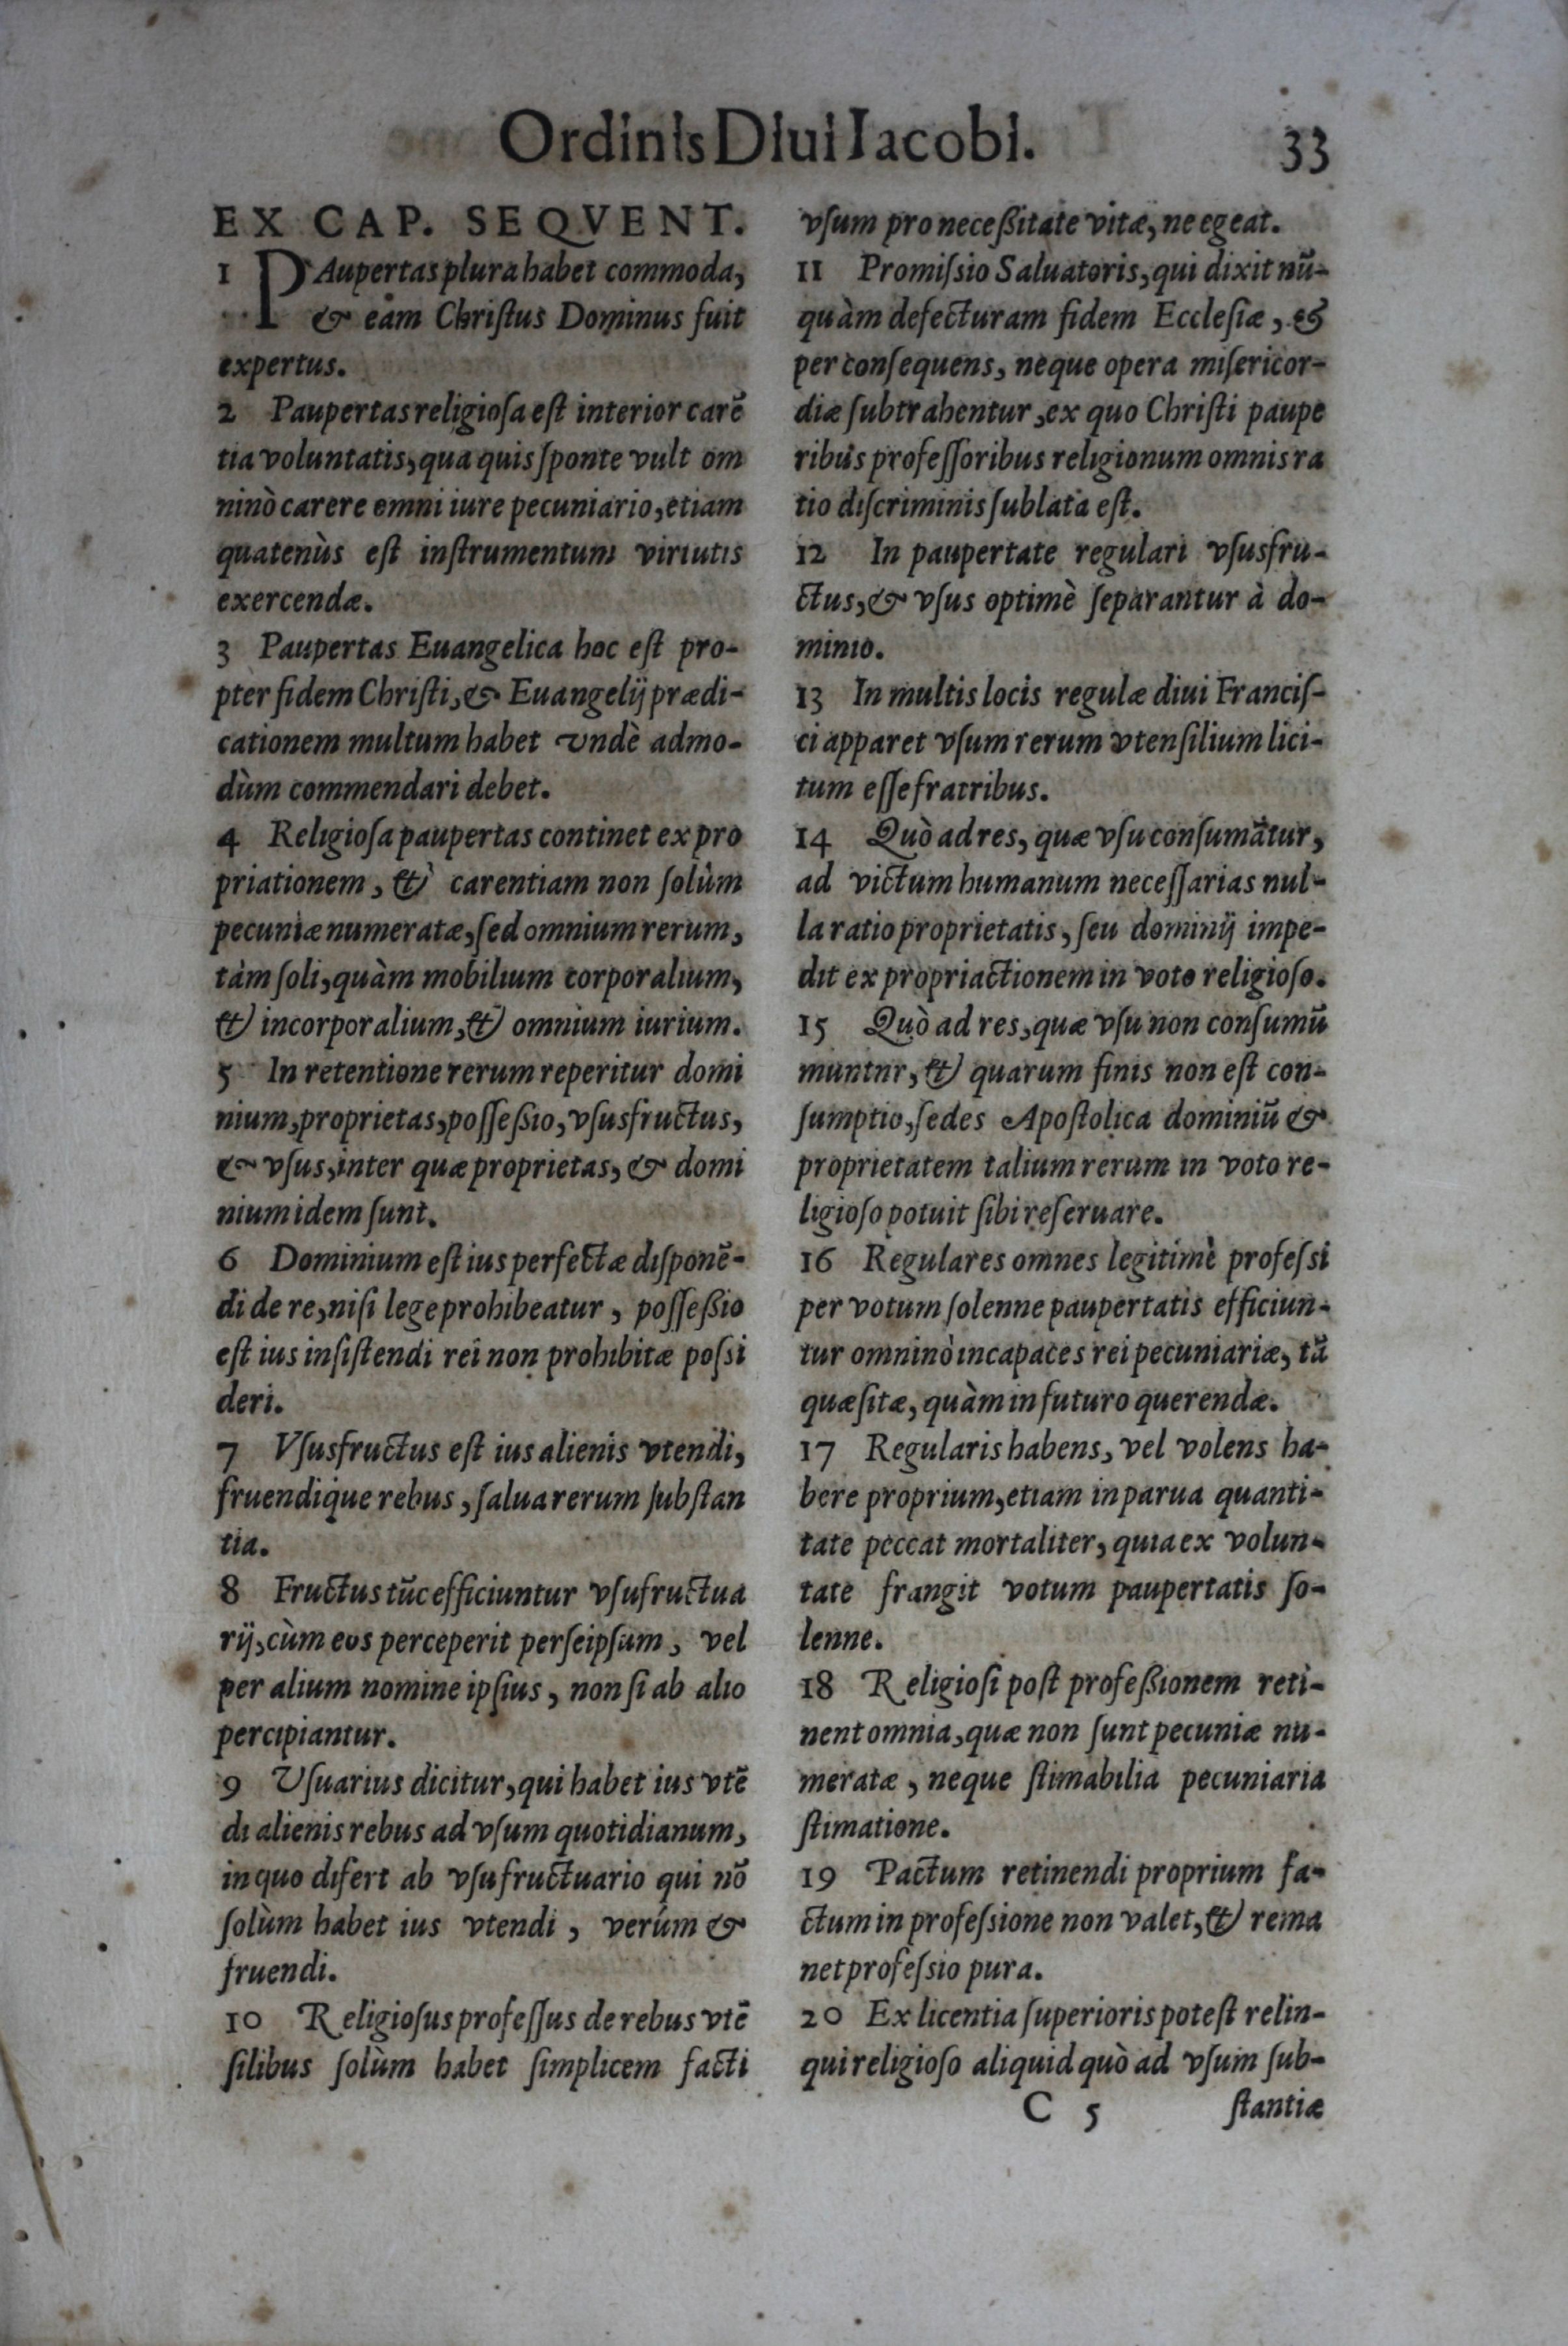 Ordinis Diui Iacobi.
33
EX CAP. SEQVENT.
1 PAupertas plura habet commoda,
& eam Christus Dominus fuit
expertus.
2 Paupertas religiosa est interior carẽ
tia voluntatis, qua quis sponte vult om
ninò carere omni iure pecuniario, etiam
quatenùs est instrumentum virtutis
exercendæ.
3 Paupertas Euangelica hoc est pro-
pter fidem Christi, & Euangelij prædi-
cationem multum habet vndè admo-
dùm commendari debet.
4 Religiosa paupertas continet expro
priationem, & carentiam non solùm
pecuniæ numeratæ, sed omnium rerum,
tàm soli, quàm mobilium corporalium,
& incorporalium, & omnium iurium.
5 In retentione rerum reperitur domi
nium, proprietas, possessio, vsusfructus,
& vsus, inter quæ proprietas, & domi
nium idem sunt.
6 Dominium est ius perfectæ disponẽ-
di de re, nisi lege prohibeatur, possessio
est ius insistendi rei non prohibitæ possi
deri.
7 Vsusfructus est ius alienis vtendi,
fruendique rebus, salua rerum substan
tia.
8 Fructus tũc efficiuntur vsufructua
rij, cùm eos perceperit per seipsum, vel
per alium nomine ipsius, non si ab alio
percipiantur.
9 Vsuarius dicitur, qui habet ius vtẽ
di alienis rebus ad vsum quotidianum,
in quo difert ab vsufructuario qui nõ
solùm habet ius vtendi, verúm &
fruendi.
10 Religiosus professus de rebus vtẽ
silibus solùm habet simplicem facti
vsum pro necessitate vitæ, ne egeat.
11 Promissio Saluatoris, qui dixit nũ-
quàm defecturam fidem Ecclesiæ, &
per consequens, neque opera misericor-
diæ subtrahentur, ex quo Christi paupe
ribus professoribus religionum omnis ra
tio discriminis sublata est.
12 In paupertate regulari vsusfru-
ctus, & vsus optimè separantur à do-
minio.
13 In multis locis regulæ diui Francis-
ci apparet vsum rerum vtensilium lici-
tum esse fratribus.
14 Quò ad res, quæ vsu consumãtur,
ad victum humanum necessarias nul-
la ratio proprietatis, seu dominij impe-
dit expropriactionem in voto religioso.
15 Quò ad res, quæ vsu non consumũ
muntnr, & quarum finis non est con-
sumptio, sedes Apostolica dominiũ &
proprietatem talium rerum in voto re-
ligioso potuit sibi reseruare.
16 Regulares omnes legitimè professi
per votum solenne paupertatis efficiun-
tur omninò incapaces rei pecuniariæ, tã
quæsitæ, quàm in futuro querendæ.
17 Regularis habens, vel volens ha-
bere proprium, etiam in parua quanti-
tate peccat mortaliter, quia ex volun-
tate frangit votum paupertatis so-
lenne.
18 Religiosi post professionem reti-
nent omnia, quæ non sunt pecuniæ nu-
meratæ, neque stimabilia pecuniaria
stimatione.
19 Pactum retinendi proprium fa-
ctum in professione non valet, & rema
net professio pura.
20 Ex licentia superioris potest relin-
qui religioso aliquid quò ad vsum sub-
C 5 stantiæ